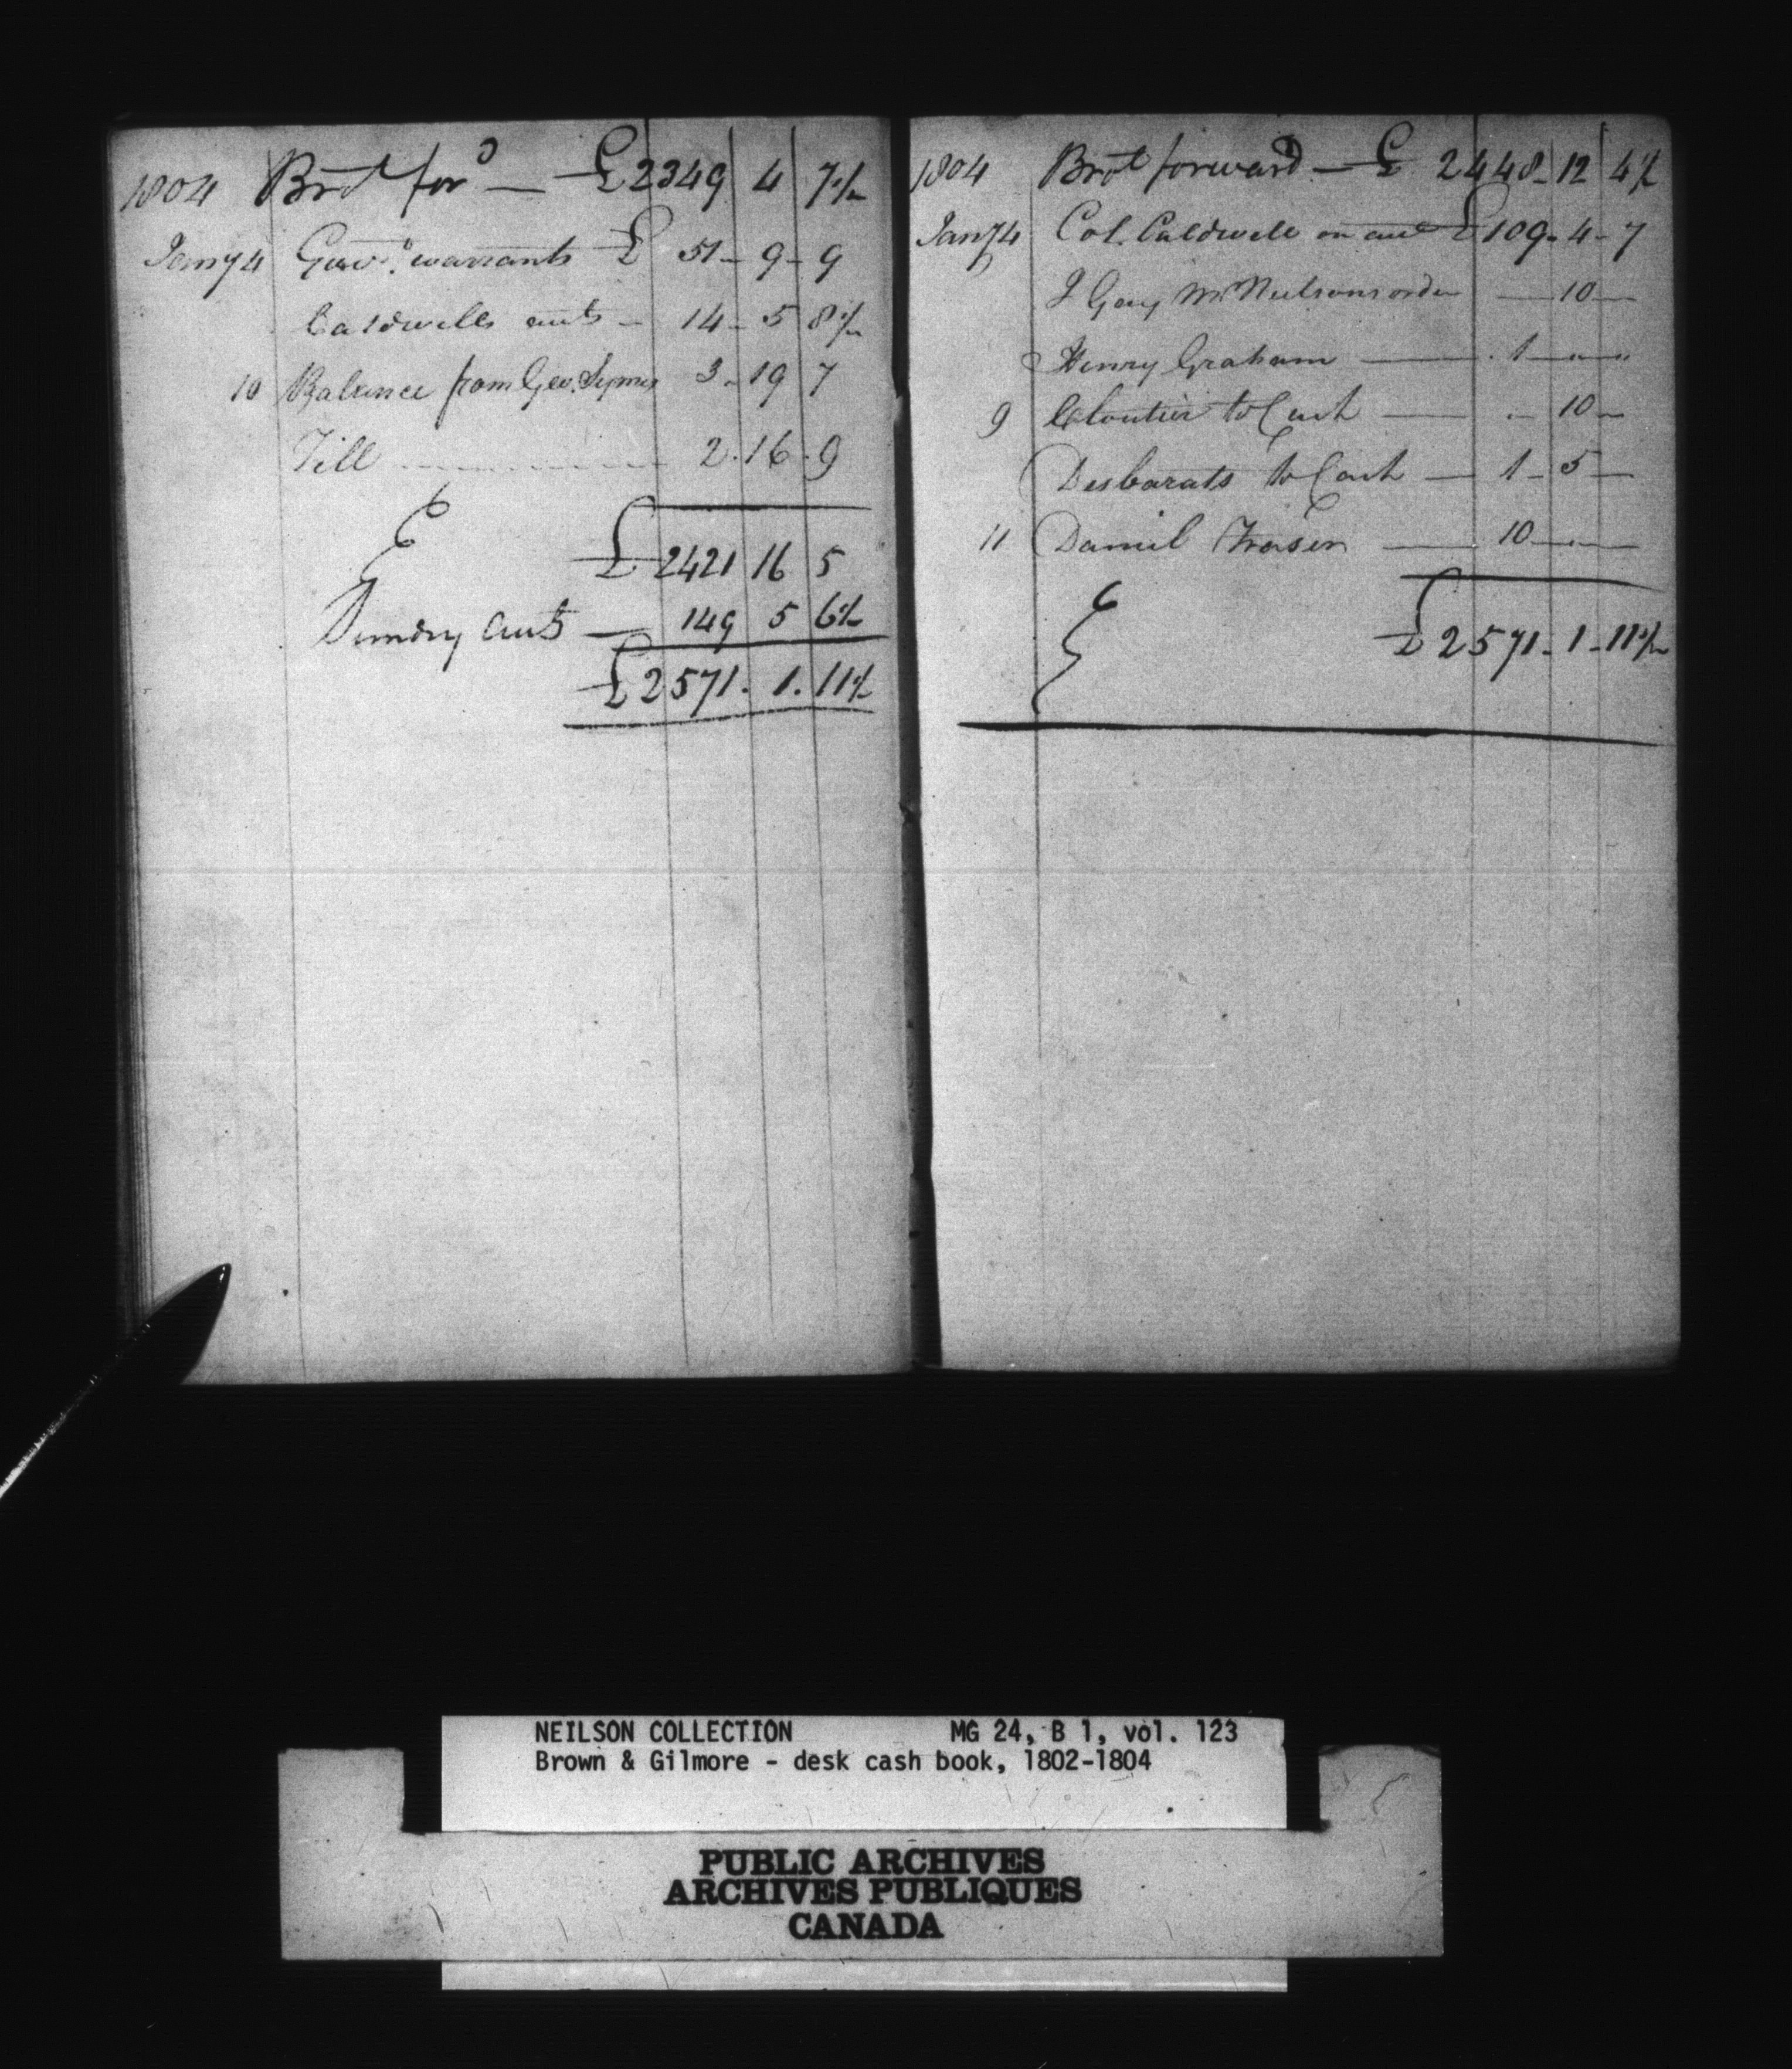 1804 Brot for^d — £2349 4 7½
Jany 4 Govt. warrants £ 51 - 9 - 9
Caldwells accts - 14 - 5 8½
10 Balance from Geo. Symes 3 - 19 7
Till 2 . 16 . 9
£2421 16 5
Sundry accts — 149 5 6½
£2571 . 1 . 11½
1804 Brot forward — £ 2448 - 12 4½
Jany 4 Col. Caldwell on acct £109 - 4 - 7
J Gary Mr Neilsons order — 10 —
Henry Graham — 1 — " — "
9 Cloutier to Cash — " - 10 —
Desbarats to Cash — 1 - 5 —
11 Daniel Fraser — 10 — " —
£2571 - 1 - 11½
NEILSON COLLECTION MG 24, B 1, vol. 123
Brown & Gilmore - desk cash book, 1802-1804
PUBLIC ARCHIVES
ARCHIVES PUBLIQUES
CANADA